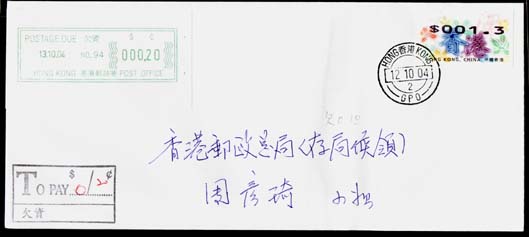 POSTAGE DUE 欠資 $ C
13.10.04 NO. 94 000,20
HONG KONG 香港郵政署 POST OFFICE
$001.3
香港
HONG KONG, CHINA 中國香港
HONG KONG 香港
12 10 04
2
GPO
香港郵政总局(存局候領)
周彦琦 小姐
$ ¢
TO PAY 0/20
欠資